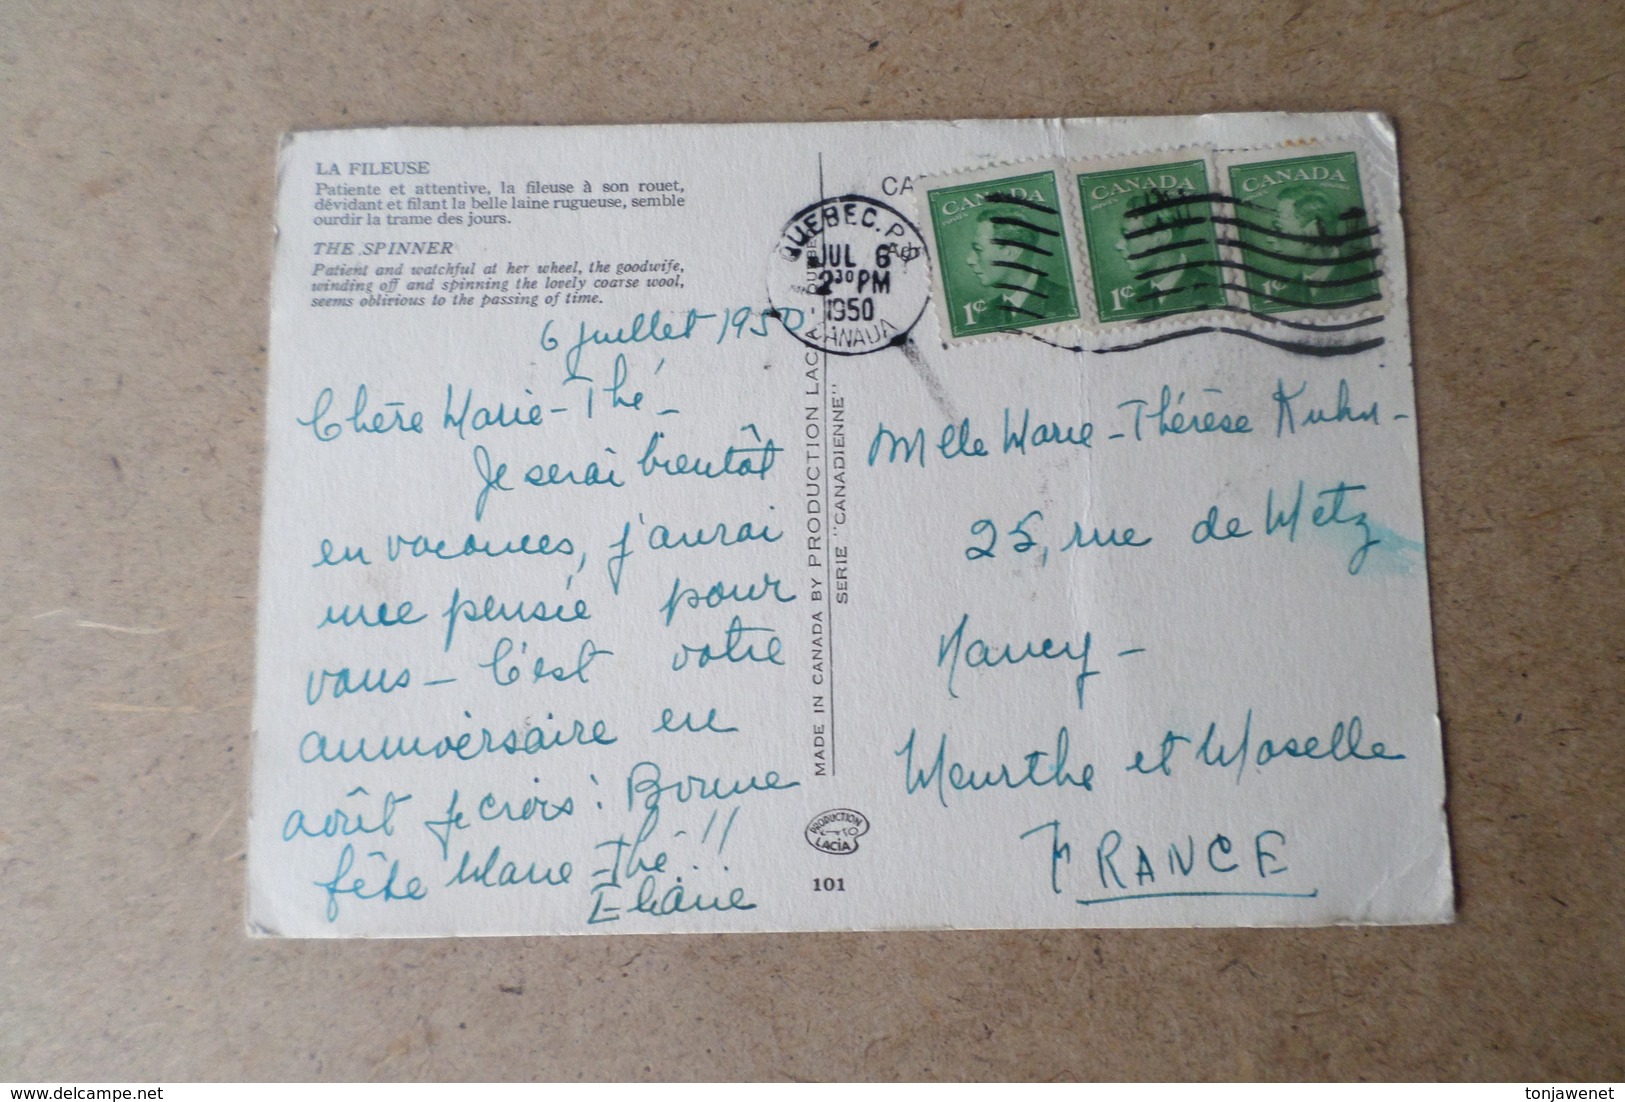 LA FILEUSE
Patiente et attentive, la fileuse à son rouet,
dévidant et filant la belle laine rugueuse, semble
ourdir la trame des jours.
THE SPINNER
Patient and watchful at her wheel, the goodwife,
winding off and spinning the lovely coarse wool,
seems oblirious to the passing of time.
6 juillet 1950
Chère Marie-Thé -
Je serai bientôt
en vacances, j'aurai
une pensée pour
vous - C'est votre
anniversaire en
août je crois : Bonne
fête Marie-Thé !!
Eliane
MADE IN CANADA BY PRODUCTION LACIA - QUEBEC
SERIE "CANADIENNE"
PRODUCTION
LACIA
101
CA
QUEBEC. P.Q
JUL 6
2 30 PM
1950
CANADA
CANADA
POSTES
1¢
CANADA
1¢
CANADA
1¢
Melle Marie-Thérèse Kuhn -
25, rue de Metz
Nancy -
Meurthe et Moselle
FRANCE
delcampe.net
tonjawenet